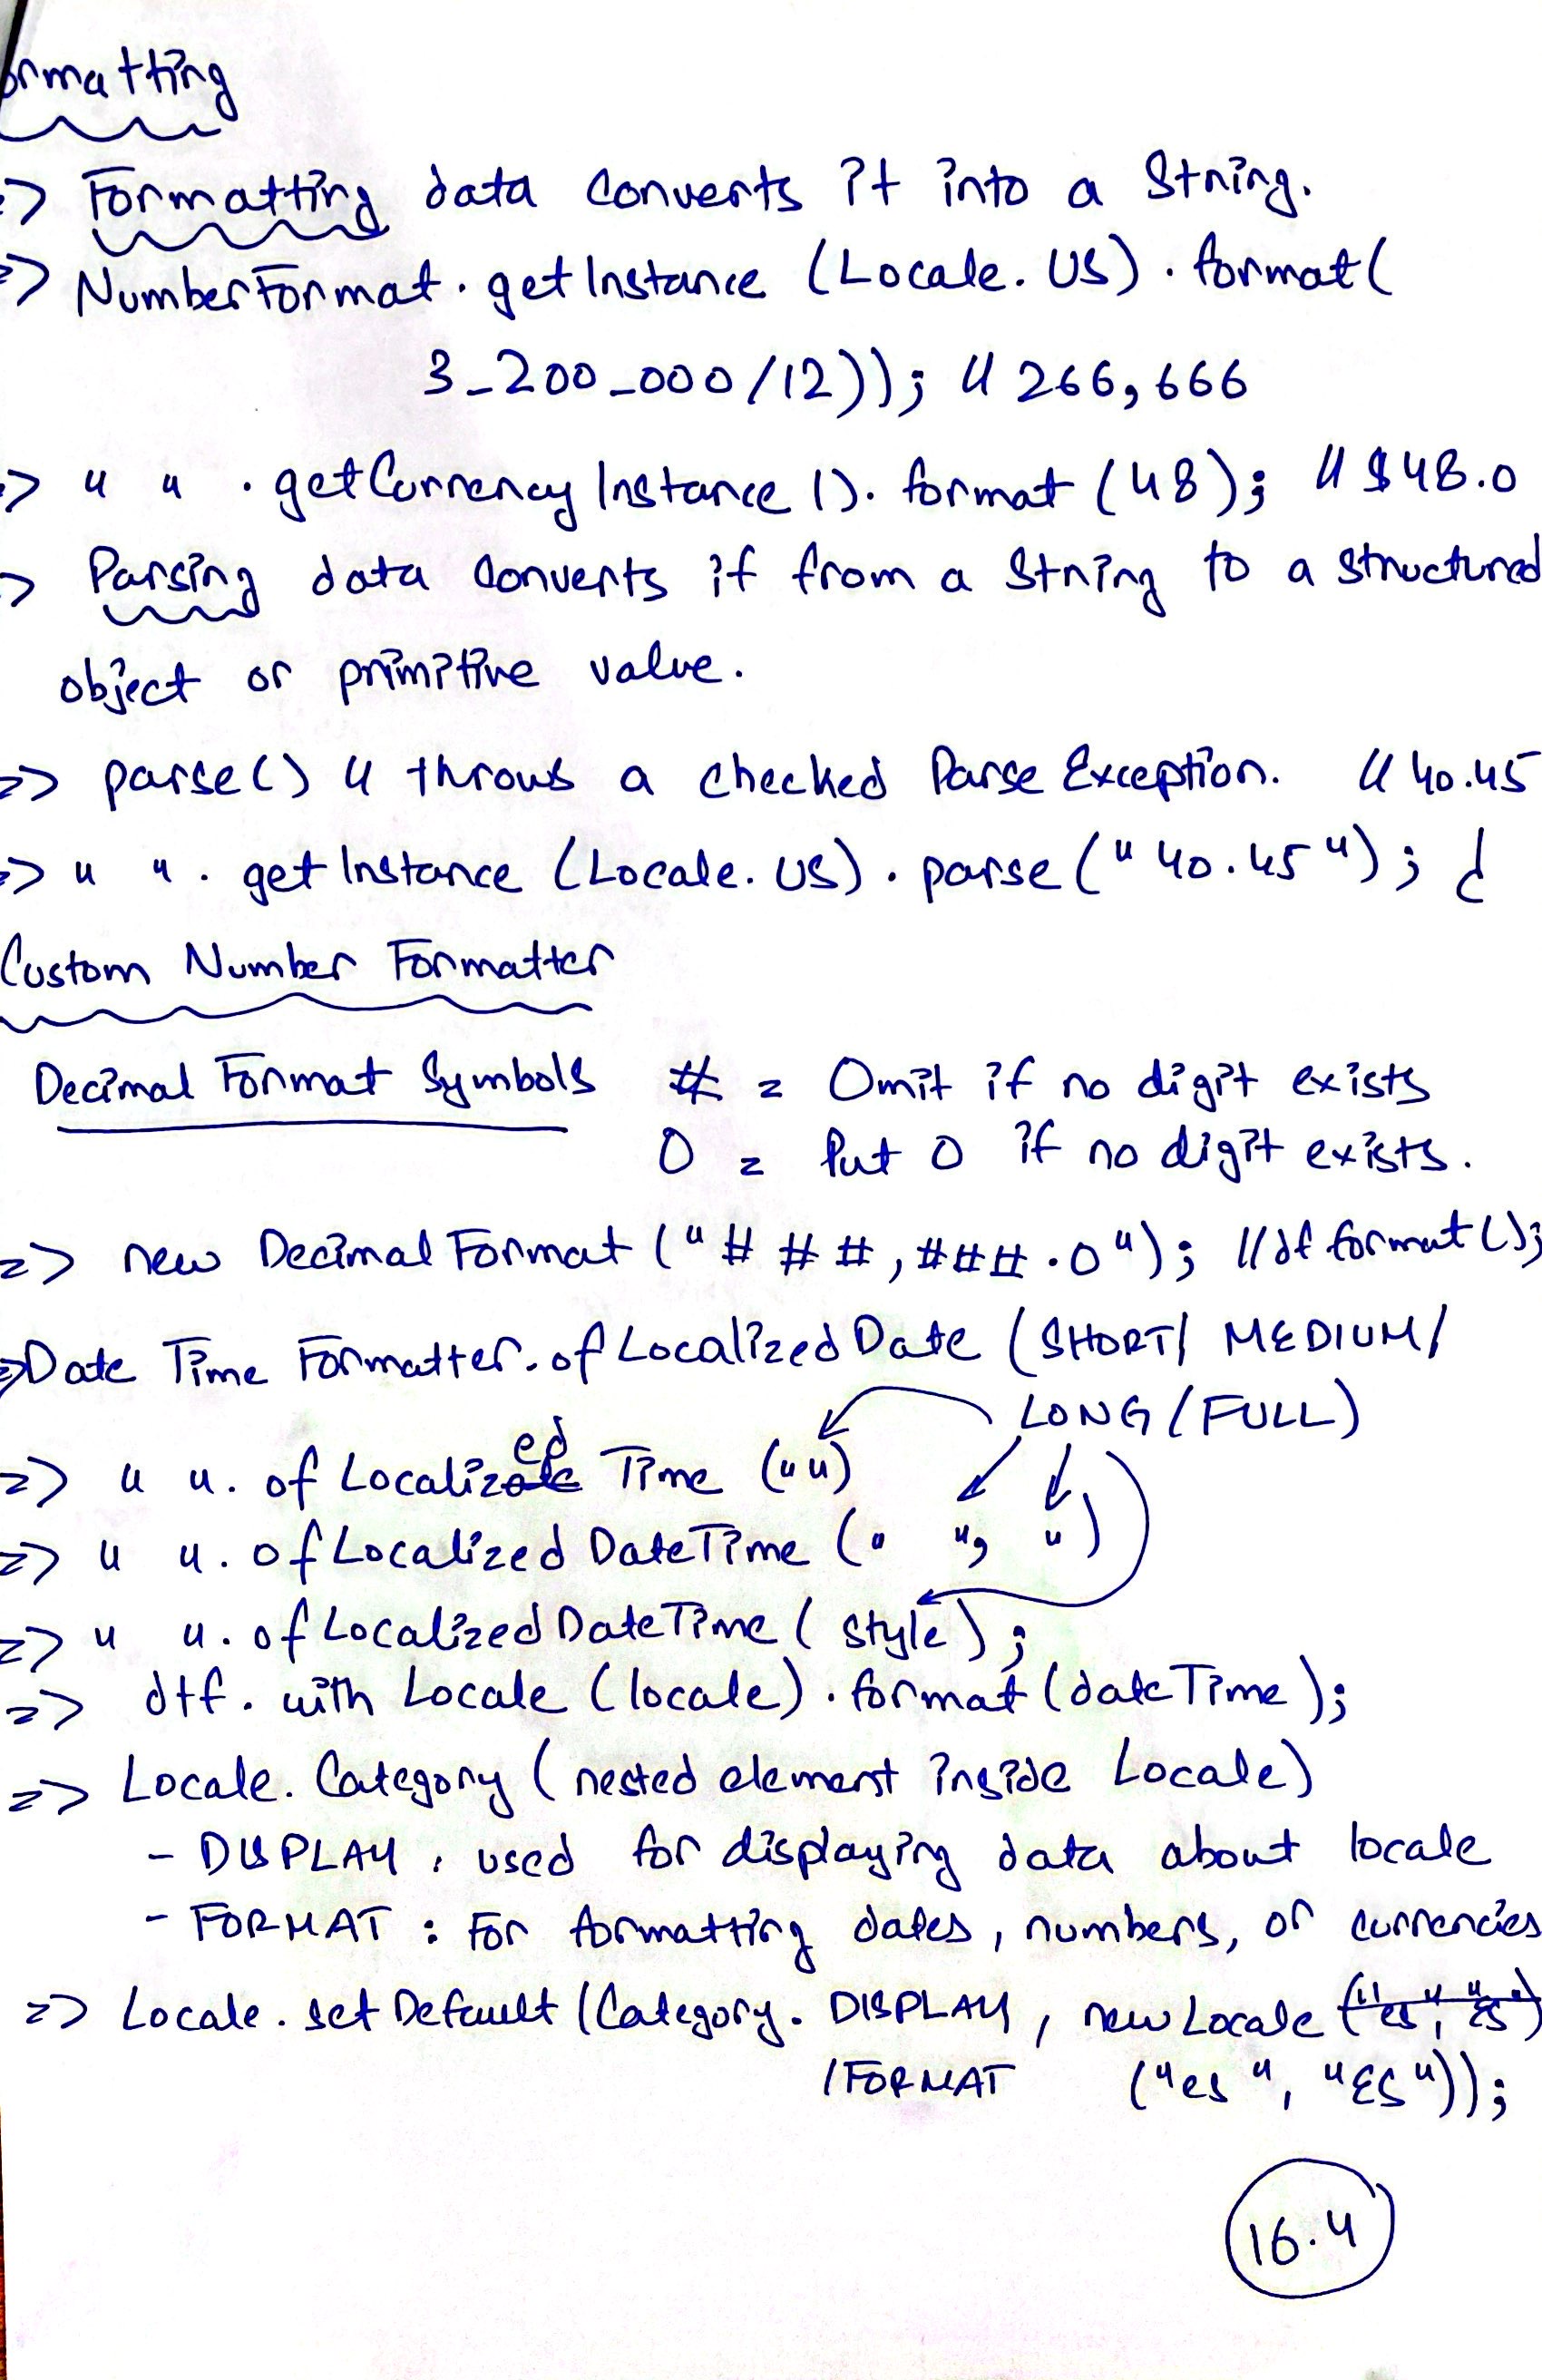 ormatting
=> Formatting data converts it into a String.
=> NumberFormat.getInstance (Locale.US).format(
3_200_000/12)); // 266,666
=> " " .getCurrencyInstance().format(48); // $48.0
=> Parsing data converts it from a String to a structured
object or primitive value.
=> parse() // throws a checked Parse Exception. // 40.45
=> " " .getInstance (Locale.US).parse("40.45");
Custom Number Formatter
Decimal Format Symbols # = Omit if no digit exists
0 = Put 0 if no digit exists.
=> new DecimalFormat ("###,###.0"); //df format();
=> Date Time Formatter.ofLocalizedDate (SHORT/ MEDIUM/
LONG/FULL)
=> " ".of Localized Time (" ")
=> " ".ofLocalized DateTime (" ", ")
=> " ".ofLocalizedDateTime (style);
=> dtf.with Locale (locale).format(dateTime);
=> Locale.Category (nested element inside Locale)
- DISPLAY : used for displaying data about locale
- FORMAT : For formatting dates, numbers, or currencies
=> Locale.set Default (Category.DISPLAY, new Locale ("es", "ES")
/FORMAT ("es", "ES"));
16.4